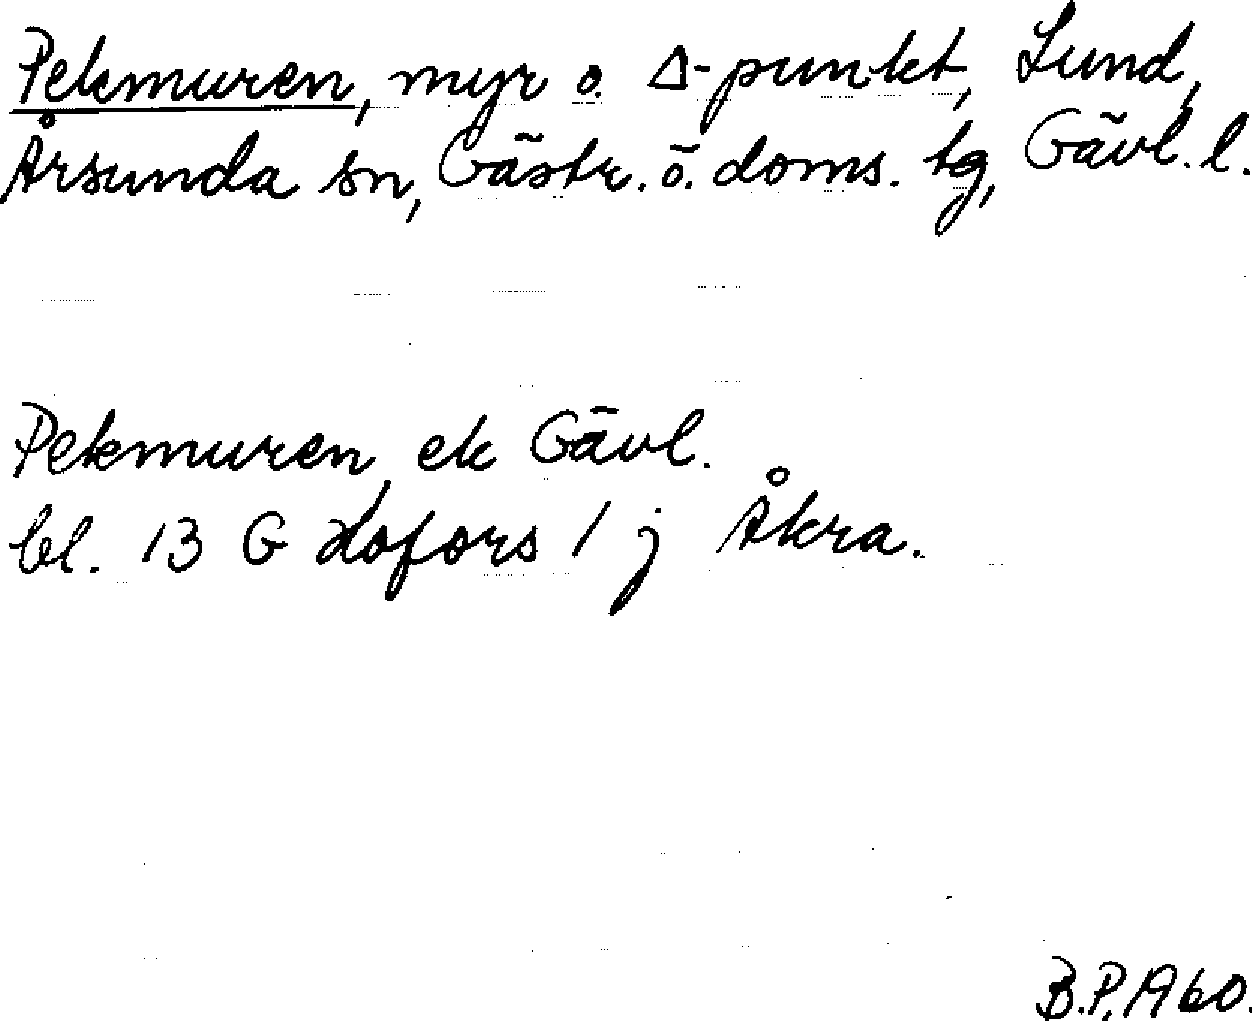 Pekmuren, myr o. Δ-punkt, Lund,
Årsunda sn, Gästr. ö. doms. tg, Gävl. l.
Pekmuren, ek Gävl.
bl. 13 G Hofors / j Åkra.
B.P. 1960.